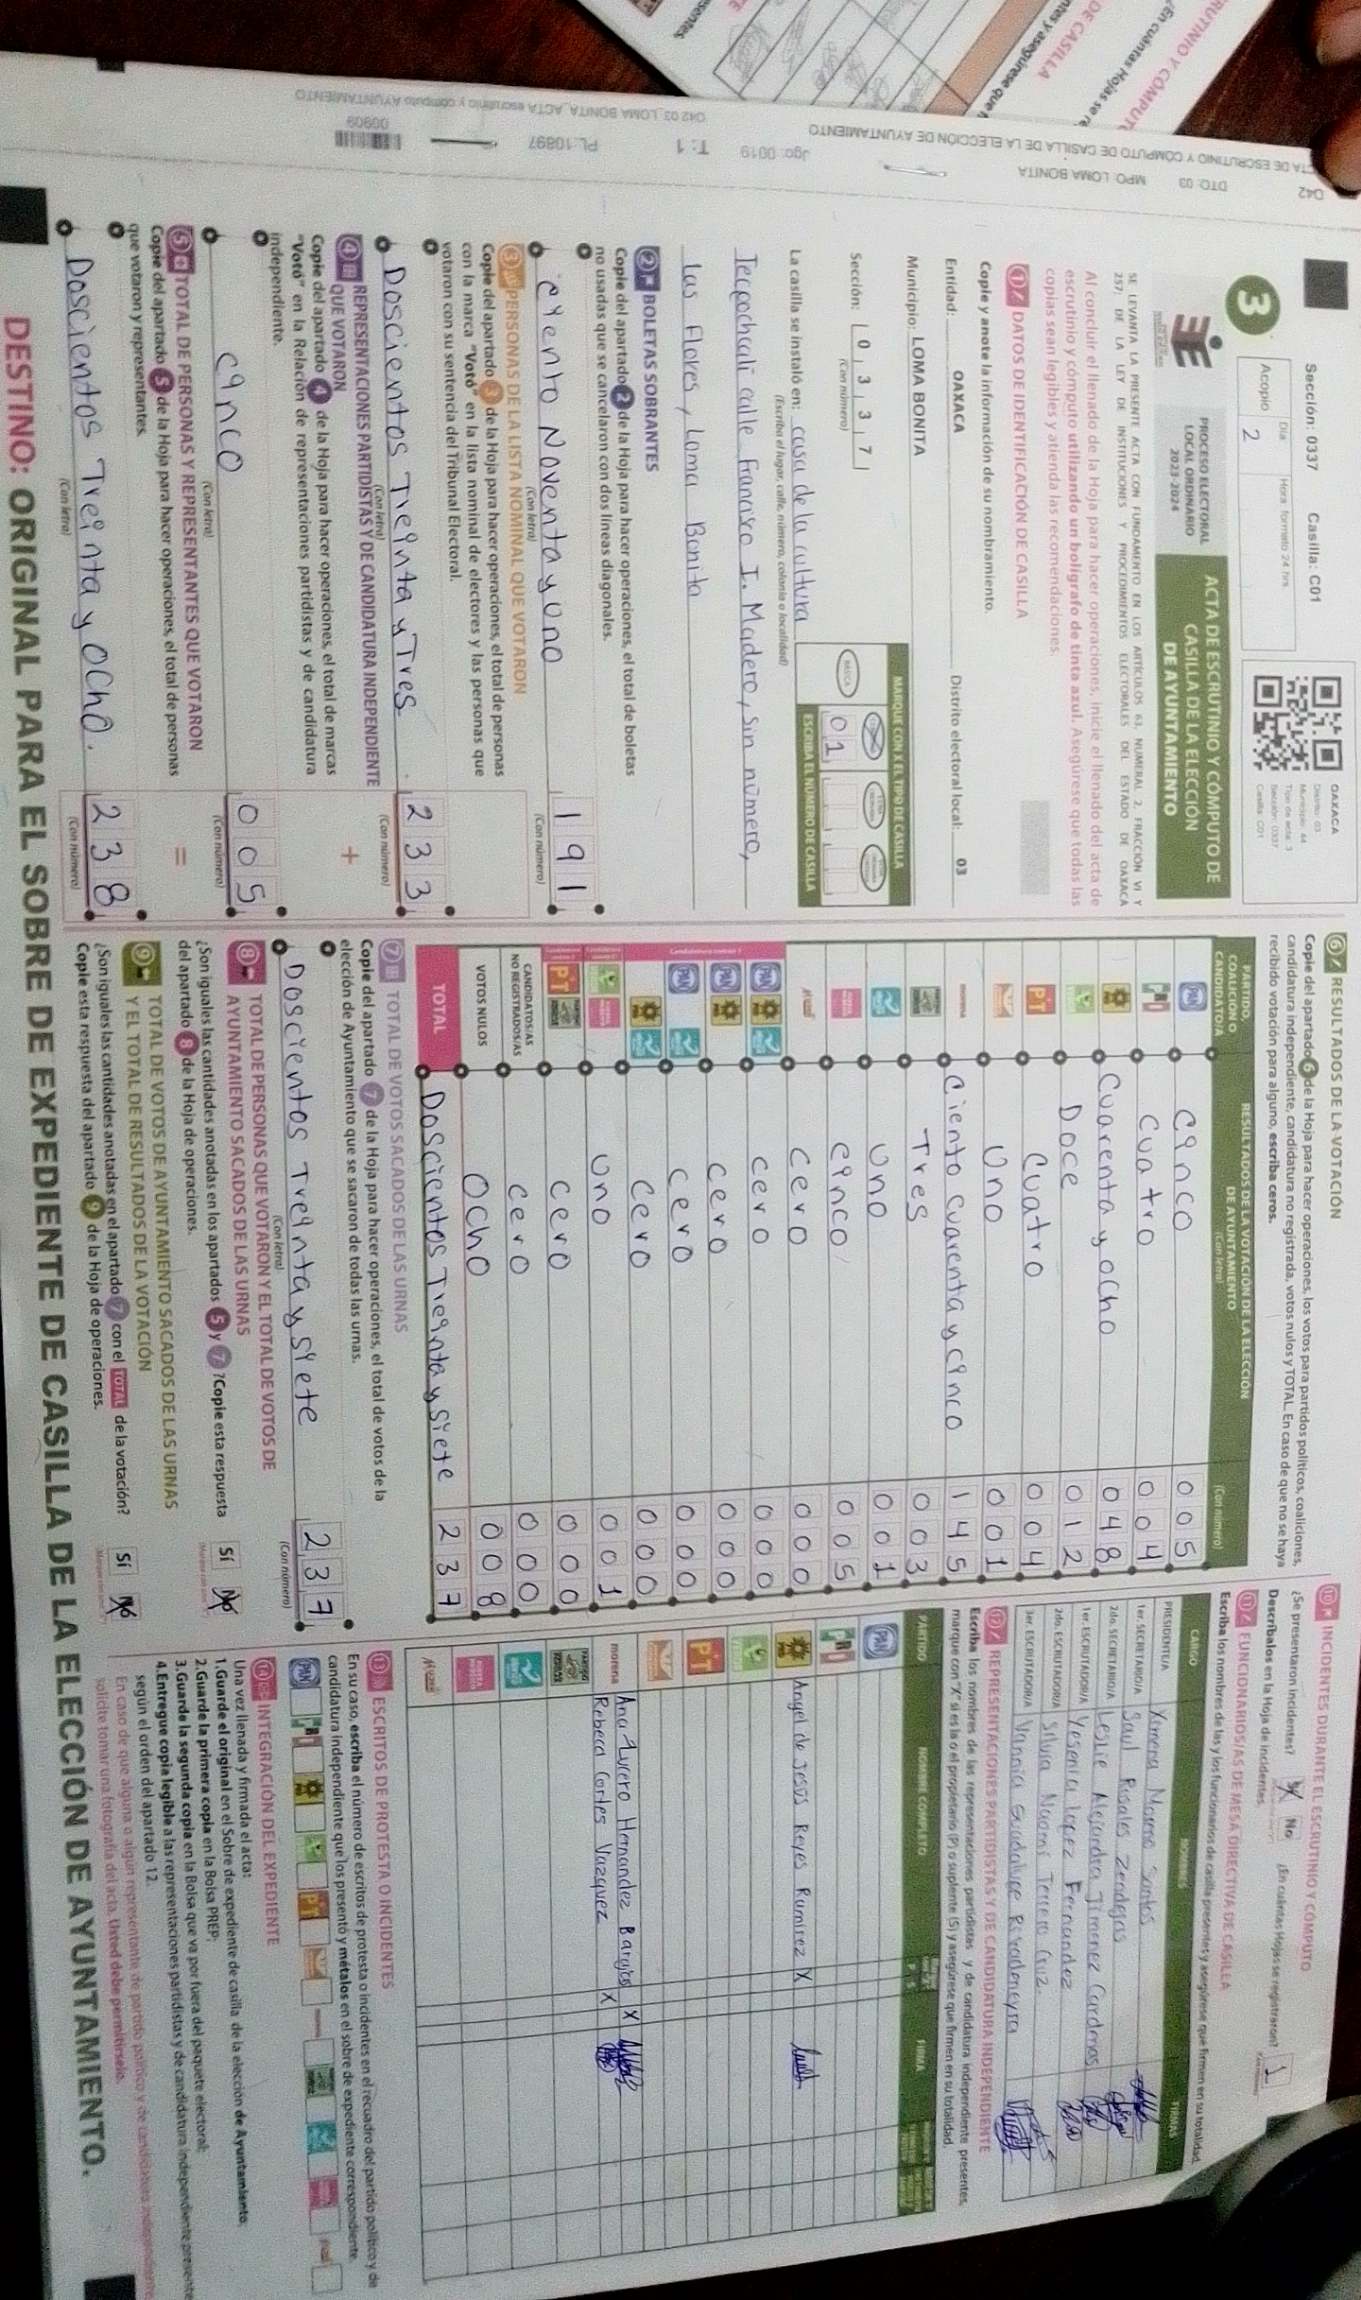 Sección: 0337 Casilla: C01
Acopio Día Hora: formato 24 hrs
2
OAXACA
Distrito: 03
Municipio: 44
Tipo de acta: 3
Sección: 0337
Casilla: C01
3
PROCESO ELECTORAL
LOCAL ORDINARIO
2023-2024
ACTA DE ESCRUTINIO Y CÓMPUTO DE
CASILLA DE LA ELECCIÓN
DE AYUNTAMIENTO
SE LEVANTA LA PRESENTE ACTA CON FUNDAMENTO EN LOS ARTÍCULOS 63, NUMERAL 2, FRACCIÓN VI Y
257; DE LA LEY DE INSTITUCIONES Y PROCEDIMIENTOS ELECTORALES DEL ESTADO DE OAXACA
Al concluir el llenado de la Hoja para hacer operaciones, inicie el llenado del acta de
escrutinio y cómputo utilizando un bolígrafo de tinta azul. Asegúrese que todas las
copias sean legibles y atienda las recomendaciones.
1 DATOS DE IDENTIFICACIÓN DE CASILLA
Copie y anote la información de su nombramiento.
Entidad: OAXACA Distrito electoral local: 03
Municipio: LOMA BONITA
MARQUE CON X EL TIPO DE CASILLA
Sección: 0 3 3 7
(Con número)
BÁSICA
01
ESCRIBA EL NÚMERO DE CASILLA
La casilla se instaló en: casa de la cultura
(Escriba el lugar, calle, número, colonia o localidad)
Tecpochcali calle Francisco I. Madero, sin número,
las Flores, Loma Bonita
2 BOLETAS SOBRANTES
Copie del apartado 2 de la Hoja para hacer operaciones, el total de boletas
no usadas que se cancelaron con dos líneas diagonales.
ciento Noventa y uno 191
(Con letra) (Con número)
3 PERSONAS DE LA LISTA NOMINAL QUE VOTARON
Copie del apartado 3 de la Hoja para hacer operaciones, el total de personas
con la marca "Votó" en la lista nominal de electores y las personas que
votaron con su sentencia del Tribunal Electoral.
Doscientos Treinta y Tres. 233
(Con letra) (Con número)
4 REPRESENTACIONES PARTIDISTAS Y DE CANDIDATURA INDEPENDIENTE
QUE VOTARON +
Copie del apartado 4 de la Hoja para hacer operaciones, el total de marcas
"Votó" en la Relación de representaciones partidistas y de candidatura
independiente.
cinco 005
(Con letra) (Con número)
5 TOTAL DE PERSONAS Y REPRESENTANTES QUE VOTARON =
Copie del apartado 5 de la Hoja para hacer operaciones, el total de personas
que votaron y representantes.
Doscientos Treinta y ocho. 238
(Con letra) (Con número)
6 RESULTADOS DE LA VOTACIÓN
Copie del apartado 6 de la Hoja para hacer operaciones, los votos para partidos políticos, coaliciones,
candidatura independiente, candidatura no registrada, votos nulos y TOTAL. En caso de que no se haya
recibido votación para alguno, escriba ceros.
PARTIDO,
COALICIÓN O
CANDIDATO/A
RESULTADOS DE LA VOTACIÓN DE LA ELECCIÓN
DE AYUNTAMIENTO
(Con letra) (Con número)
PAN cinco 005
PRI cuatro 004
Cuarenta y ocho 048
Doce 012
PT cuatro 004
uno 001
morena ciento cuarenta y cinco 145
Tres 003
uno 001
cinco 005
cero 000
PAN cero 000
PAN cero 000
PAN cero 000
cero 000
uno 001
PT cero 000
CANDIDATOS/AS
NO REGISTRADOS/AS cero 000
VOTOS NULOS ocho 008
TOTAL Doscientos Treinta y siete 237
7 TOTAL DE VOTOS SACADOS DE LAS URNAS
Copie del apartado 7 de la Hoja para hacer operaciones, el total de votos de la
elección de Ayuntamiento que se sacaron de todas las urnas.
Doscientos Treinta y siete 237
(Con letra) (Con número)
8 TOTAL DE PERSONAS QUE VOTARON Y EL TOTAL DE VOTOS DE
AYUNTAMIENTO SACADOS DE LAS URNAS
¿Son iguales las cantidades anotadas en los apartados 5 y 7 ? Copie esta respuesta
del apartado 8 de la Hoja de operaciones.
Sí No
9 TOTAL DE VOTOS DE AYUNTAMIENTO SACADOS DE LAS URNAS
Y EL TOTAL DE RESULTADOS DE LA VOTACIÓN
¿Son iguales las cantidades anotadas en el apartado 7 con el TOTAL de la votación?
Copie esta respuesta del apartado 9 de la Hoja de operaciones.
Sí No
10 INCIDENTES DURANTE EL ESCRUTINIO Y CÓMPUTO
¿Se presentaron incidentes? Sí No ¿En cuántas Hojas se registraron? 1
Descríbalos en la Hoja de incidentes.
11 FUNCIONARIOS/AS DE MESA DIRECTIVA DE CASILLA
Escriba los nombres de las y los funcionarios de casilla presentes y asegúrese que firmen en su totalidad.
CARGO NOMBRES FIRMAS
PRESIDENTE/A Ximena Moreno Santos
1er. SECRETARIO/A Saul Rosales Zendejas
2do. SECRETARIO/A Leslie Alejandra Jimenez Cardenas
1er. ESCRUTADOR/A Yesenia lopez Fernandez
2do. ESCRUTADOR/A Silvia Noemi Terrero Cruz.
3er. ESCRUTADOR/A Vannia Guadalupe Rivadeneyra
12 REPRESENTACIONES PARTIDISTAS Y DE CANDIDATURA INDEPENDIENTE
Escriba los nombres de las representaciones partidistas y de candidatura independiente presentes,
marque con "X" si es la o el propietario (P) o suplente (S) y asegúrese que firmen en su totalidad.
PARTIDO NOMBRE COMPLETO P S FIRMA
PAN
PRI
Angel de Jesús Reyes Ramirez X
PT
morena Ana Lucero Hernandez Barajas X
Rebeca Cortes Vazquez X
13 ESCRITOS DE PROTESTA O INCIDENTES
En su caso, escriba el número de escritos de protesta o incidentes en el recuadro del partido político y de
candidatura independiente que los presentó y métalos en el sobre de expediente correspondiente.
14 INTEGRACIÓN DEL EXPEDIENTE
Una vez llenada y firmada el acta:
1.Guarde el original en el Sobre de expediente de casilla de la elección de Ayuntamiento;
2.Guarde la primera copia en la Bolsa PREP;
3.Guarde la segunda copia en la Bolsa que va por fuera del paquete electoral;
4.Entregue copia legible a las representaciones partidistas y de candidatura independiente presente
según el orden del apartado 12.
En caso de que alguna o algún representante de partido político y de candidatura independiente
solicite tomar una fotografía del acta, Usted debe permitírselo.
DESTINO: ORIGINAL PARA EL SOBRE DE EXPEDIENTE DE CASILLA DE LA ELECCIÓN DE AYUNTAMIENTO.
042 DTO: 03 MPO: LOMA BONITA
ACTA DE ESCRUTINIO Y CÓMPUTO DE CASILLA DE LA ELECCIÓN DE AYUNTAMIENTO
Jgo: 0019 T: 1 PL: 10897
00909
042 03_LOMA BONITA_ACTA escrutinio y cómputo AYUNTAMIENTO
RUTINIO Y CÓMPUT
¿En cuántas Hojas se r
DE CASILLA
ntes y asegúrese que